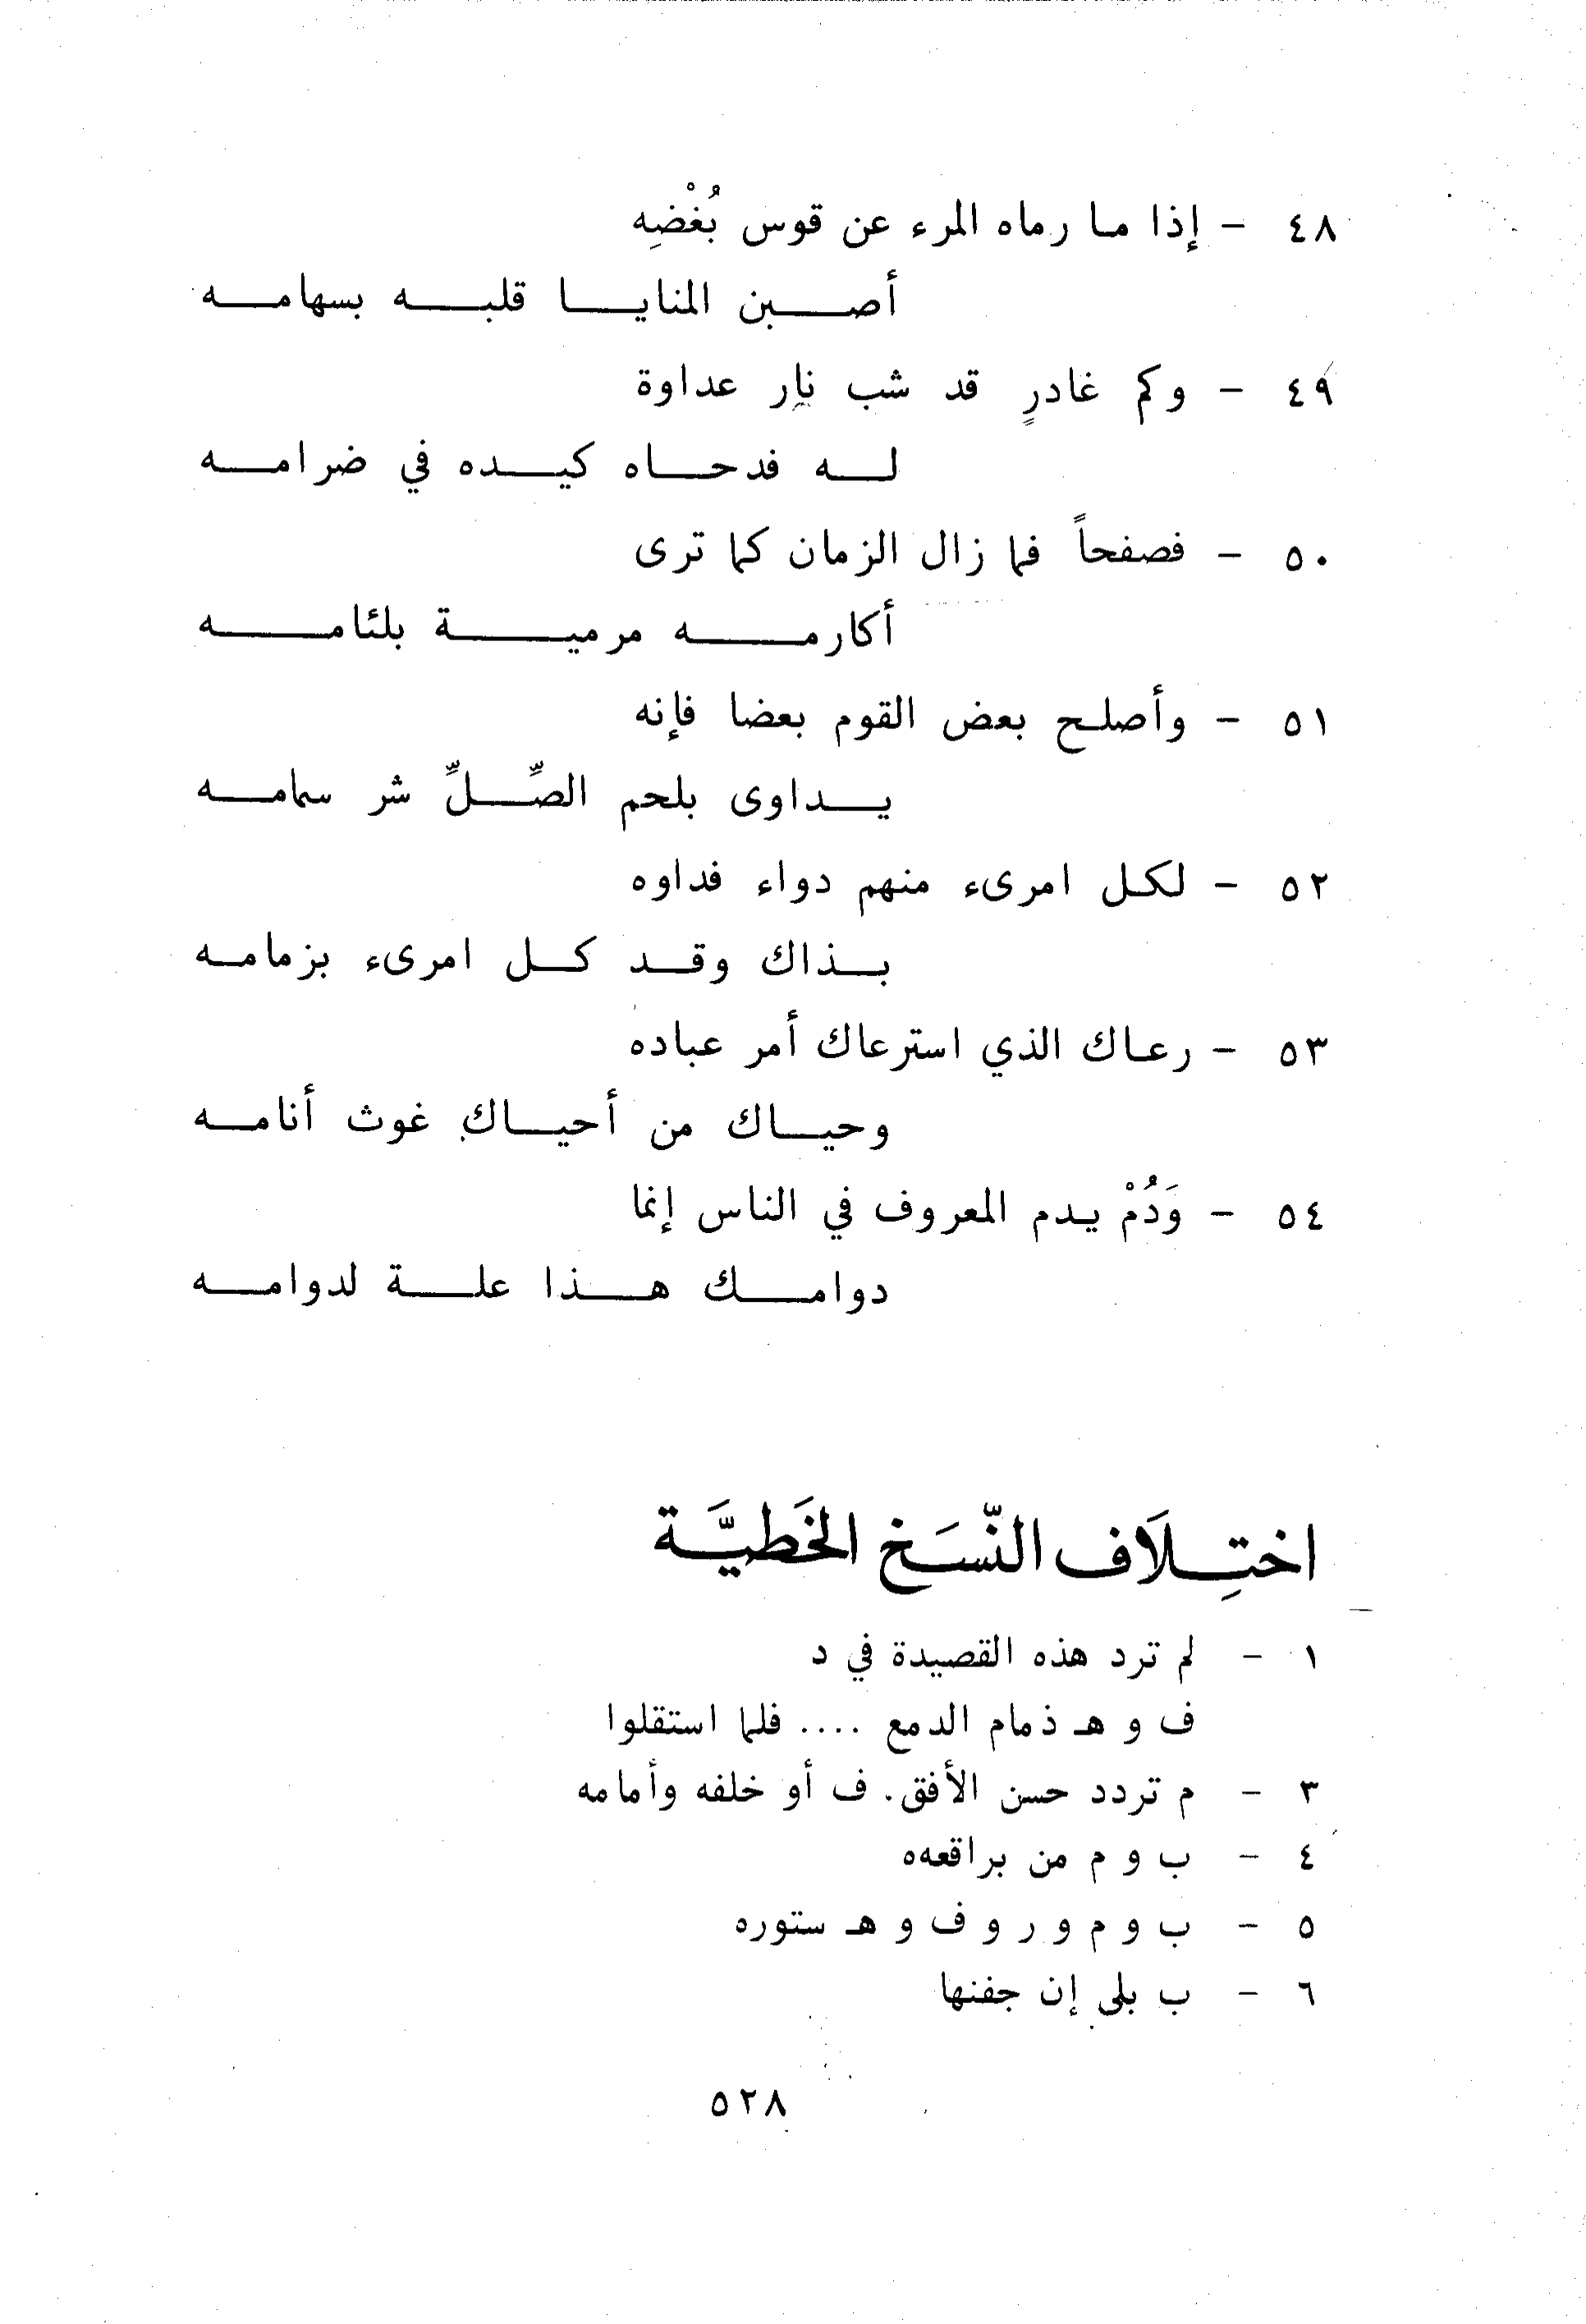 ٤٨ – إذا ما رماه المرء عن قوس بُغْضِه
أصبن المنايا قلبه بسهامه
٤٩ – وكم غادرٍ قد شب نار عداوة
له فدحاه كيده في ضرامه
٥٠ – فصفحاً فما زال الزمان كما ترى
أكارمه مرمية بلئامه
٥١ – وأصلح بعض القوم بعضا فإنه
يداوى بلحم الصِّلِّ شر سمامه
٥٢ – لكل امرىء منهم دواء فداوه
بذاك وقد كل امرىء بزمامه
٥٣ – رعاك الذي استرعاك أمر عباده
وحياك من أحياك غوث أنامه
٥٤ – وَدُمْ يدم المعروف في الناس إنما
دوامك هذا علة لدوامه
اختِلَاف النّسَخ الخَطيَّة
١ – لم ترد هذه القصيدة في د
ف و هـ ذمام الدمع .... فلما استقلوا
٣ – م تردد حسن الأفق. ف أو خلفه وأمامه
٤ – ب و م من براقعهه
٥ – ب و م و ر و ف و هـ ستوره
٦ – ب بلى إن جفنها
٥٢٨